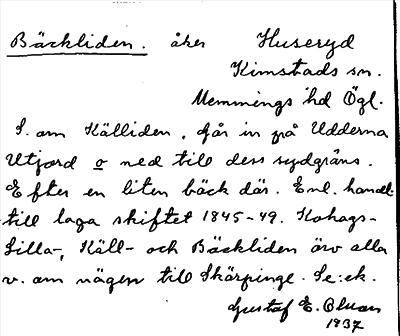 Bäckliden. åker Huseryd
Kimstads sn.
Memmings hd Ögl.
S. om Källiden. Går in på Udderna
Utjord o ned till dess sydgräns.
Efter en liten bäck där. Enl. handl.
till laga skiftet 1845-49. Kohags-
Lilla-, Käll- och Bäckliden äro alla
v. om vägen till Skärpinge. Se: ek.
Gustaf E. Olsson
1937